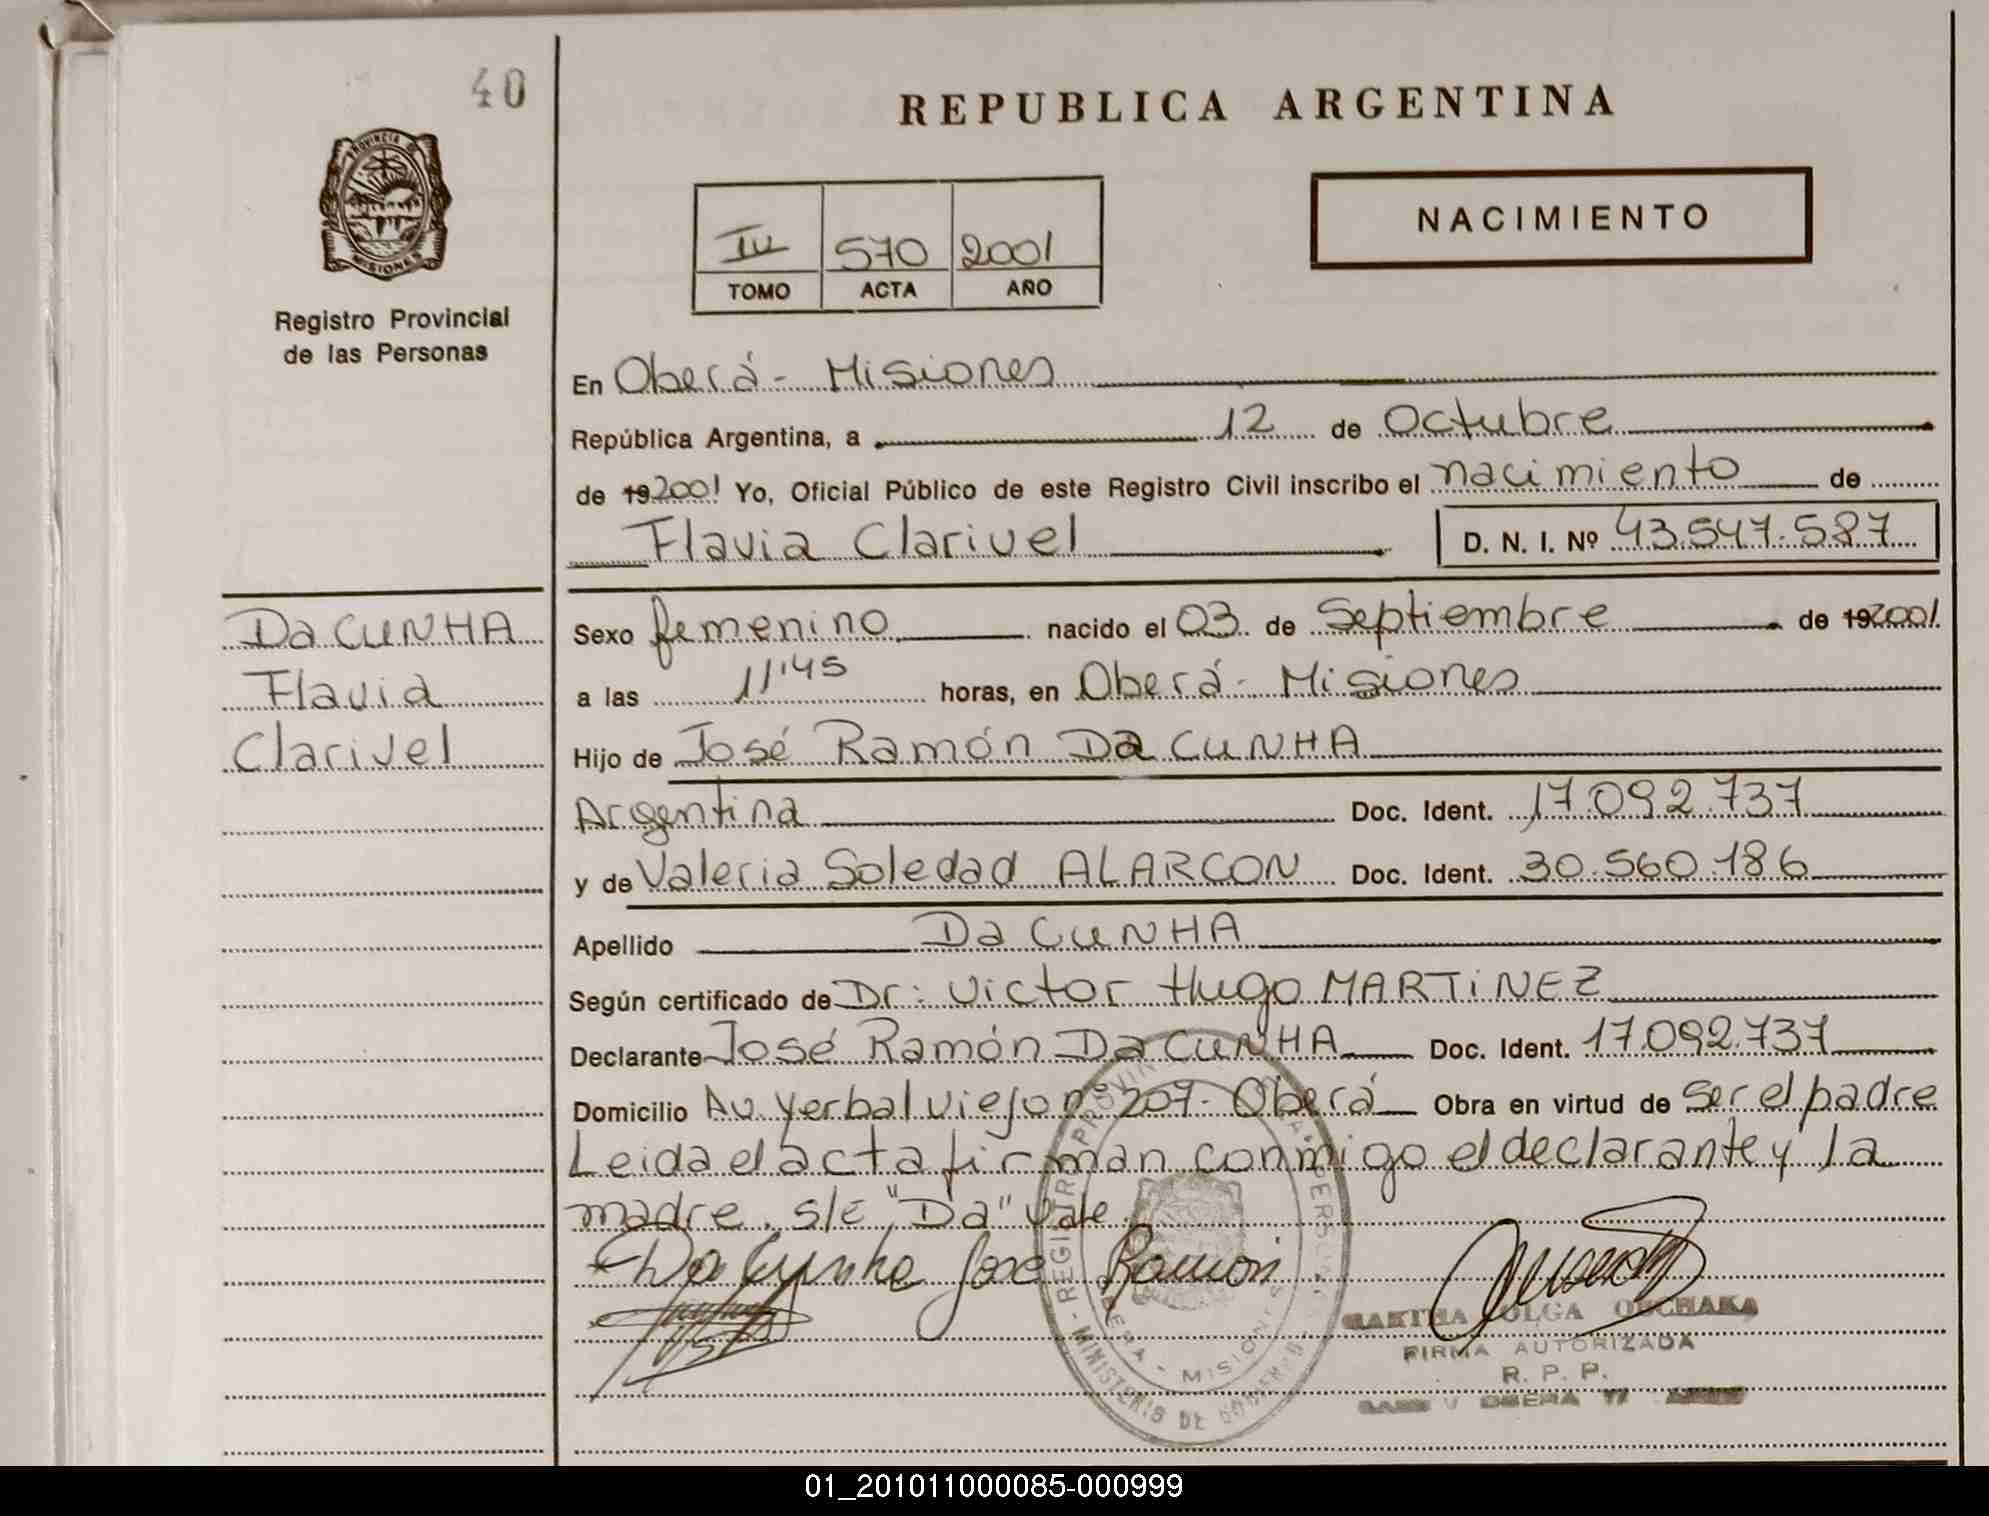 40
REPUBLICA ARGENTINA
PROVINCIA DE
MISIONES
NACIMIENTO
570 2001
TOMO ACTA AÑO
Registro Provincial
de las Personas
En Oberá - Misiones
República Argentina, a 12 de Octubre
de 192001 Yo, Oficial Público de este Registro Civil inscribo el nacimiento de
Flavia Clarivel D. N. I. Nº 43.547.587
Da CUNHA
Flavia
Clarivel
Sexo femenino nacido el 03 de Septiembre de 192001
a las 11'45 horas, en Oberá - Misiones
Hijo de José Ramón Da CUNHA
Argentina Doc. Ident. 17.092.737
y de Valeria Soledad ALARCON Doc. Ident. 30.560.186
Apellido Da CUNHA
Según certificado de Dr: Victor Hugo MARTiNEZ
Declarante José Ramón Da CUNHA Doc. Ident. 17.092.737
Domicilio Av. Yerbal viejo nº 207 - Oberá Obra en virtud de Ser el padre
Leida el acta firman conmigo el declarante y la
madre. s/E "Da" vale.
Da Cunha José Ramón
OLGA
FIRMA AUTORIZADA
R. P. P.
OBERA
REGISTRO PROVINCIAL
MINISTERIO DE GOBIERNO
OBERA - MISIONES
01_201011000085-000999